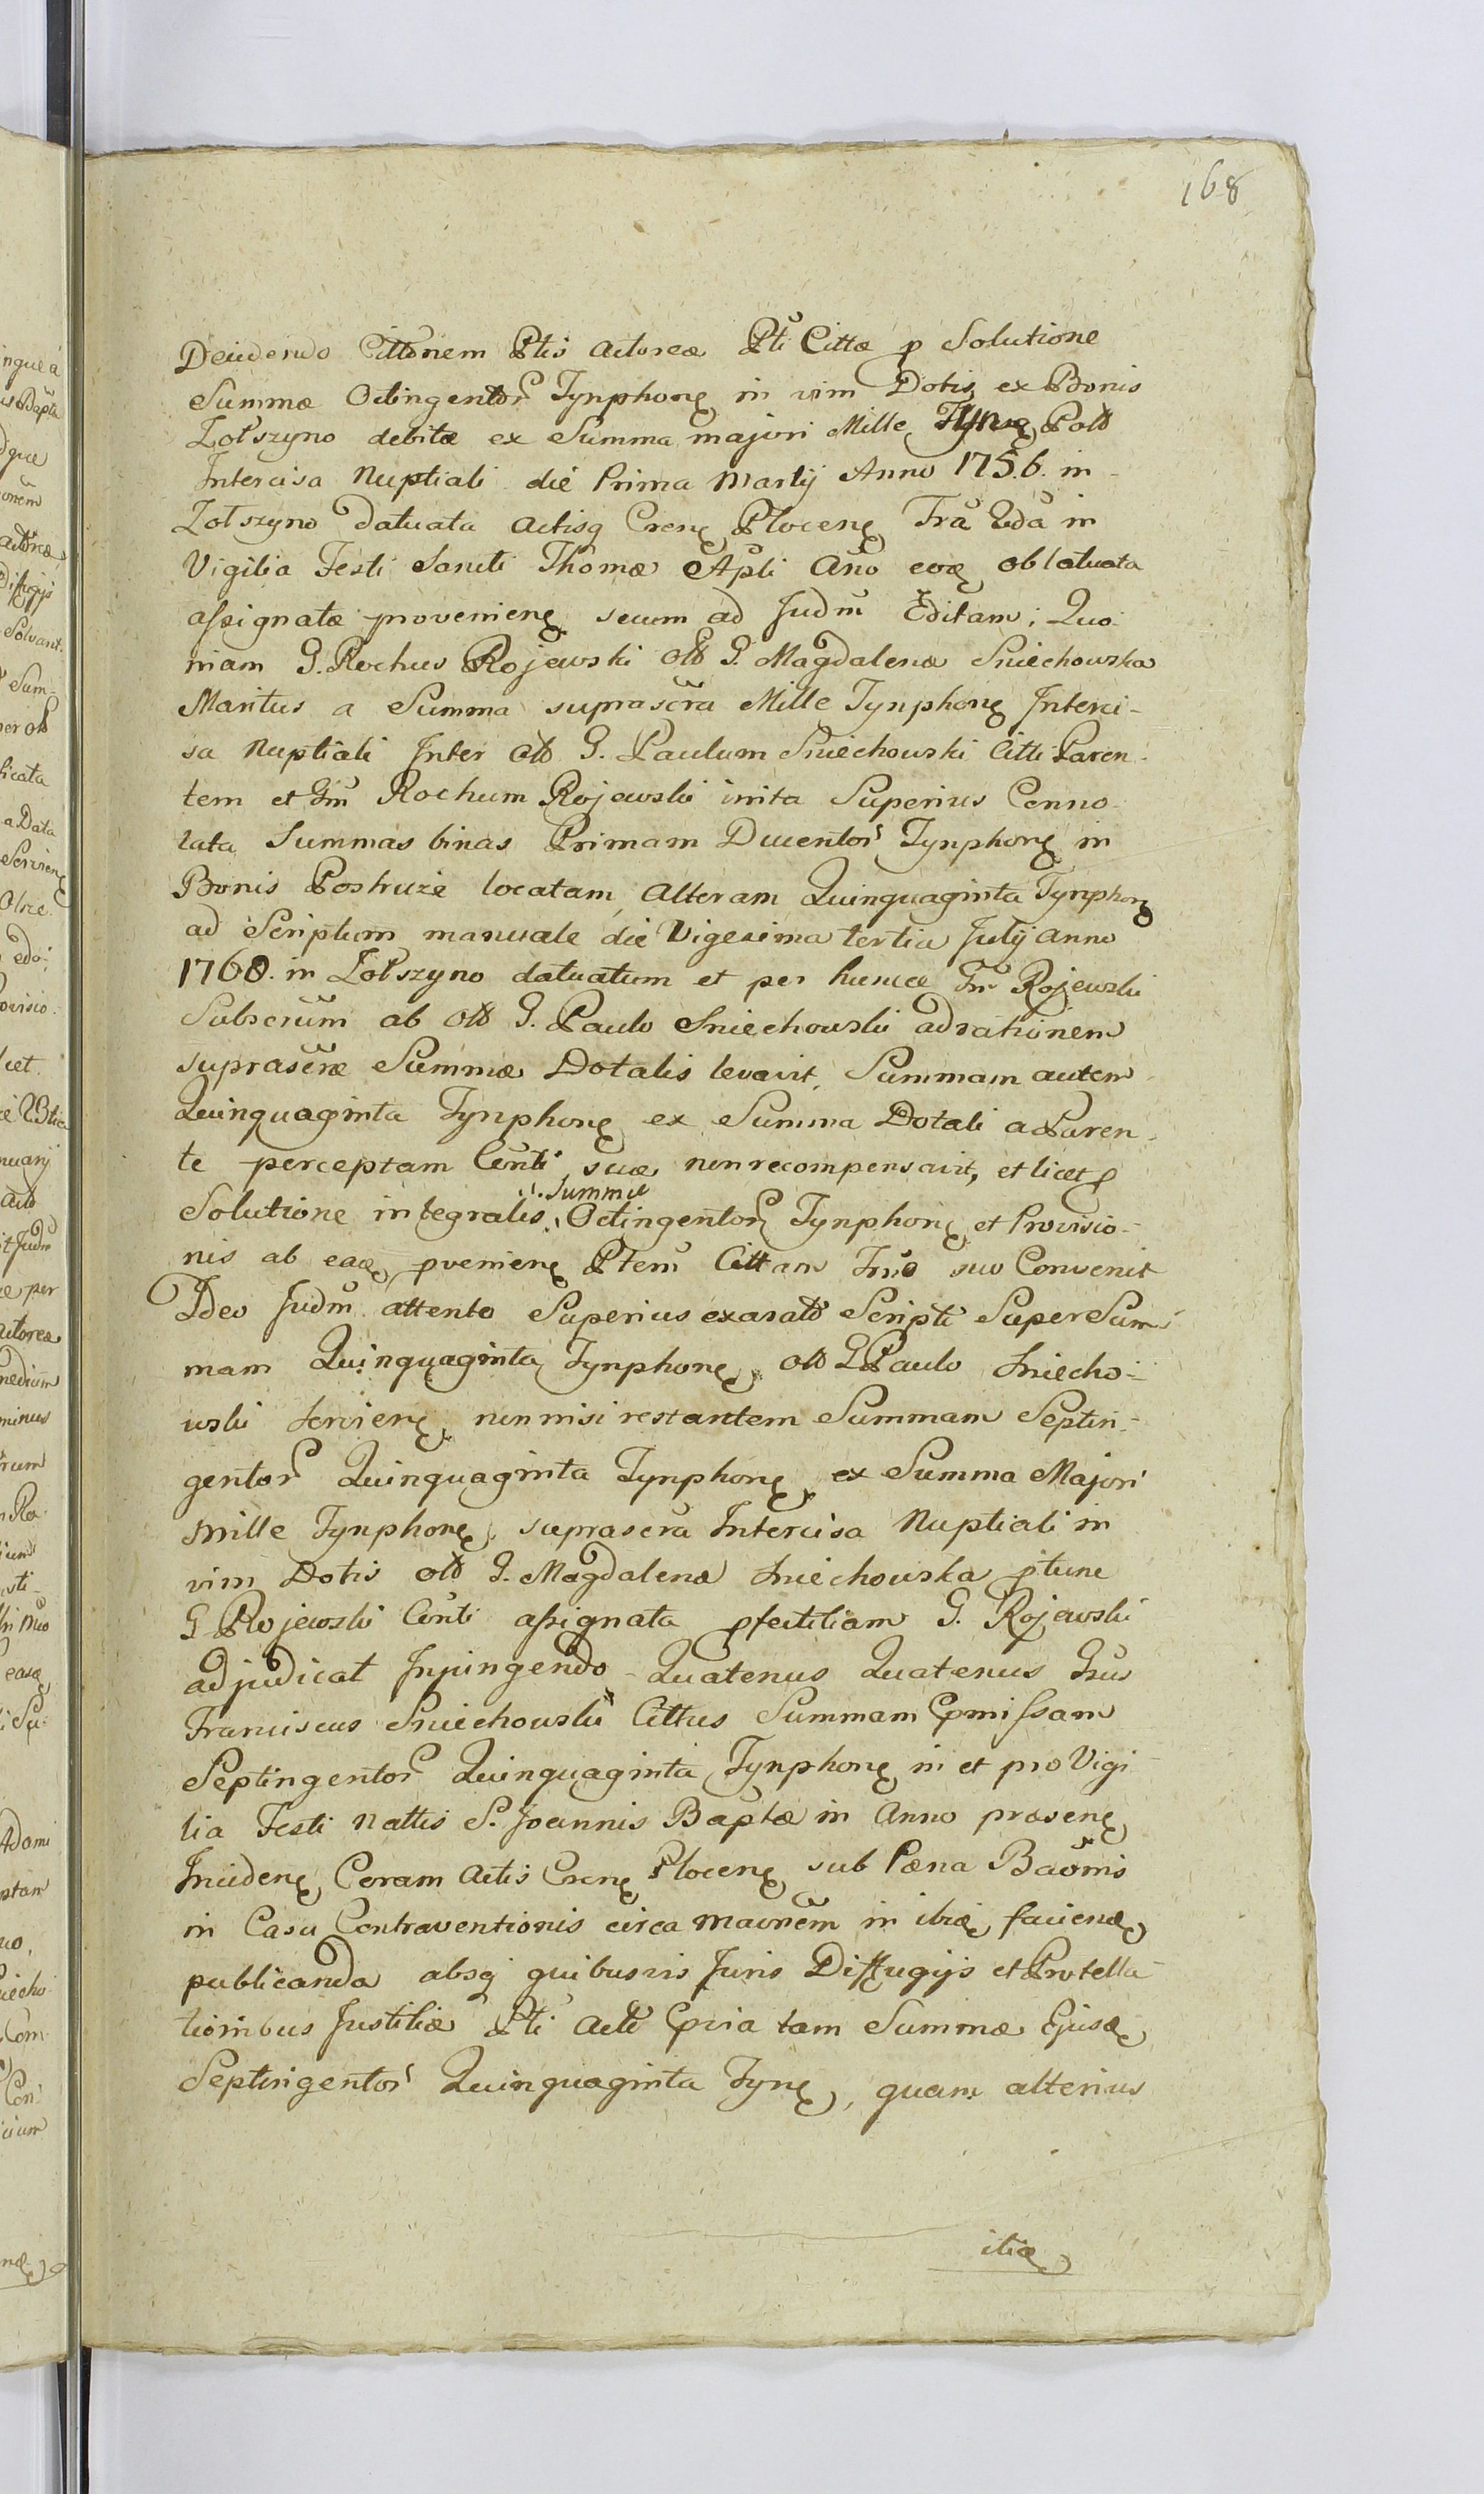 168
Decidendo Cittōnem Ptis Actoreæ Pti Cittæ p Solutione
Summæ Octingentor Tynphonę in vim Dotis ex Bonis
Zołszyno debitæ ex Summa majori Mille Tynę Polō
Intercisa Nuptiali die Prima Martij Anno 1756. in
Zołszyno datuata Actisq Crenę Plocenę Frā 2dā in
Vigilia Festi Sancti Thomæ Apli Ano eoę oblatuata
assignatæ provenienę secum ad Judm Editam; Quo-
niam G. Rochus Rojewski olō G. Magdalenæ Sniechowska
Maritus a Summa suprascra Mille Tynphonę Interci-
sa Nuptiali Inter olō G. Paulum Sniechowski Citti Paren-
tem et Gm Rochum Rojewski inita Superius Conno-
tata Summas binas Primam Ducentor Tynphonę in
Bonis Postruże locatam, Alteram Quinquaginta Tynphonę
ad Scriptum manuale die Vigesima tertia Julij anno
1760. in Zołszyno datuatum et per hunce Gm Rojewski
Subscrum ab olō G. Paulo Sniechowski ad rationem
suprascræ Summæ Dotalis levavit, Summam autem
Quinquaginta Tynphonę ex Summa Dotali a Paren-
te perceptam Conti suæ non recompensavit, et licet p
Summæ
Solutione integralis Octingentor Tynphonę et Provisio-
nis ab eaę pvenienę Ptem Cittam Fro suo Convenit
Ideo Judm attento Superius exarato Scripti Super Sum-
mam Quinquaginta Tynphonę olō G Paulo Sniecho-
wski servienę, non nisi restantem Summam Septin-
gentor Quinquaginta Tynphonę ex Summa Majori
mille Tynphonę suprascra Intercisa Nuptiali in
vim Dotis olō G. Magdalenæ Sniechowska ptunc
G Rojewski Conti assignata pfectitiam G. Rojewski
adjudicat Injungendo Quatenus Quatenus Gsus
Franciscus Sniechowski Cittus Summam Cpmissam
Septingentor Quinquaginta Tynphonę in et pro Vigi
lia Festi Nattis S. Joannis Baptæ in Anno præsenę
Incidenę Coram Actis Crenę Plocenę sub Pæna Baōnis
in Casu Contraventionis circa maōnem in ibię faciendę
publicanda absq quibusvis Juris Diffugijs et Protella-
tionibus Justitiæ Pti Acte Cpria tam Summæ Ejusdę
Septingentor Quinquaginta Tynę, quam alterius
itię